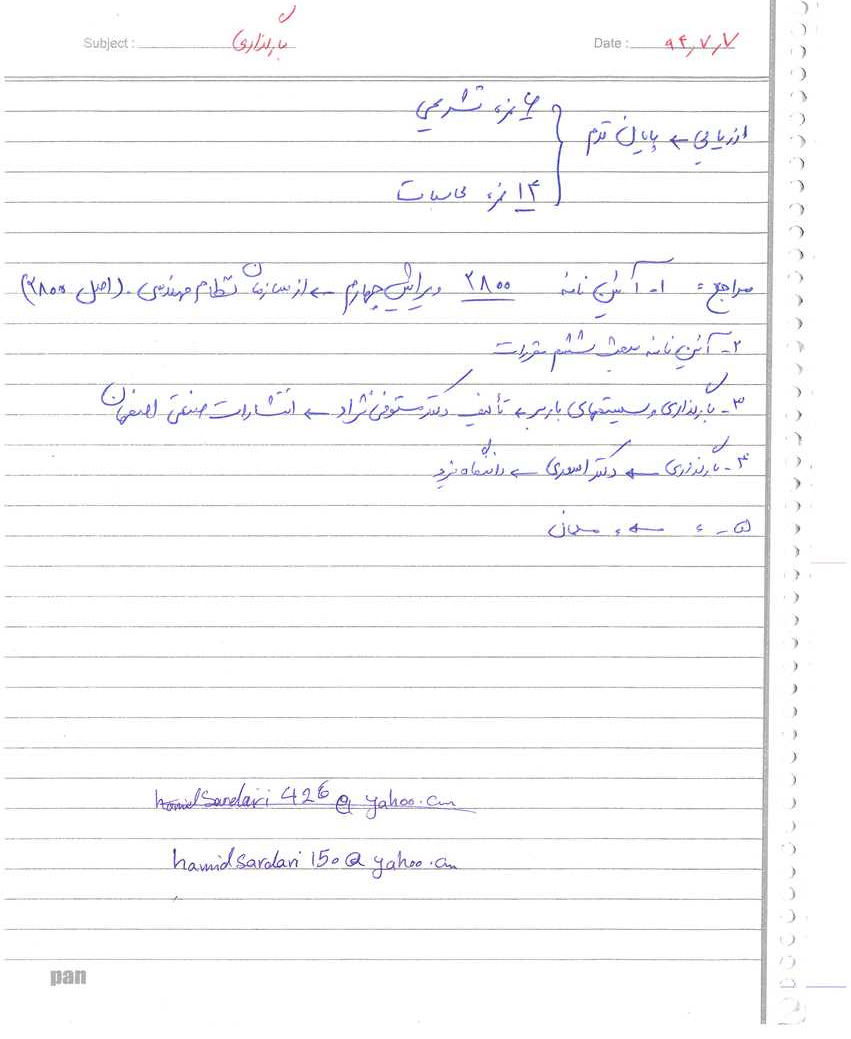 Subject : بارگذاری
Date : ۹۴,۷,۷
۶ نمره تشریحی
ارزیابی ← پایان ترم
۱۴ نمره محاسبات
مراجع : ۱- آئین نامه ۲۸۰۰ ویرایش چهارم ← از سازمان نظام مهندسی. (اصل ۲۸۰۰)
۲- آئین نامه مبحث ششم مقررات
۳- بارگذاری و سیستمهای باربر ← تألیف دکتر مستوفی نژاد ← انتشارات صنعتی اصفهان
۴- بارگذاری ← دکتر اسعدی ← دانشگاه یزد
۵- « ← «
hamidsardari 426@yahoo.com
hamidsardari 150@yahoo.com
pan